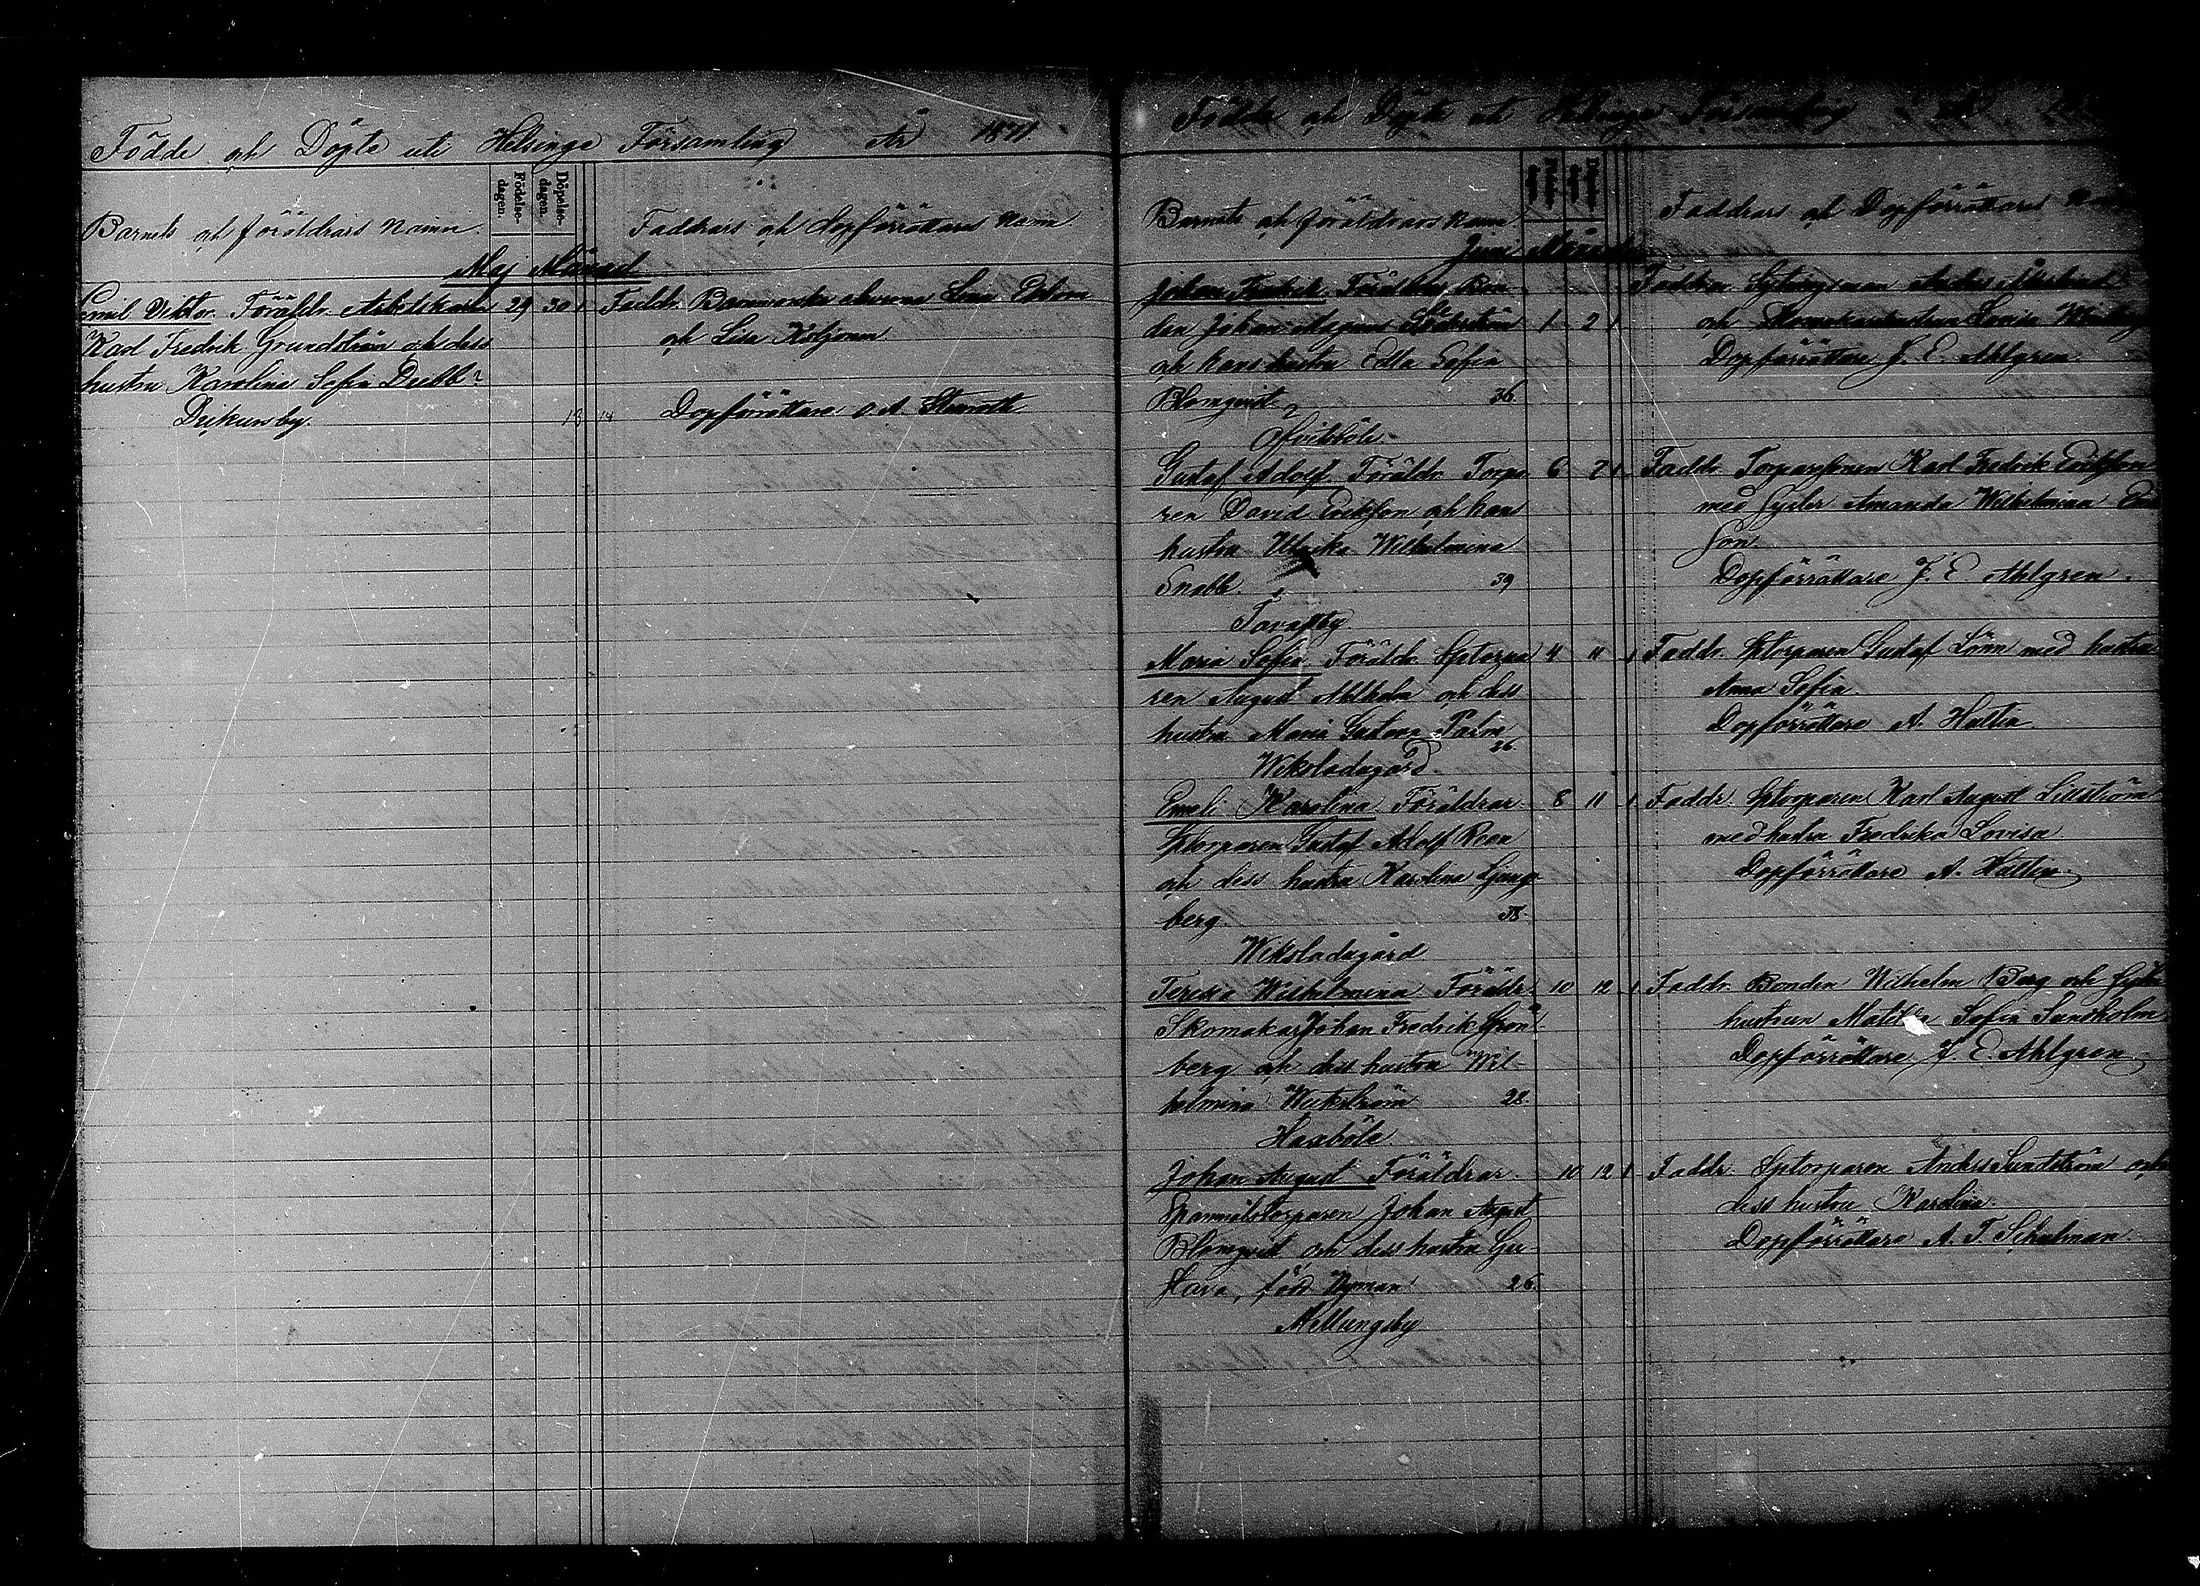 Födde och Döpte uti Helsinge Församling År 1871
Barnets och föräldrars namn.
Födelse-dagen.
Döpelse-dagen.
Faddrars och dopförrättares namn.
Maj Månad
Emil Viktor. Föräldr. Arbetskarlen 29 30 1
Karl Fredrik Grundström och dess
hustru Karolina Sofia
Dickursby.
13 14
Faddr. Lena
och Lisa
Dopförrättare
Födde och Döpte uti Helsinge Församling År
Barnets och föräldrars namn
Faddrars och Dopförrättares
Juni Månad
Johan Fredrik Föräldrar Bon-
den Johan Magnus Söderström 1 2 1
och hans hustru Edla Sofia
Blomqvist 36
Ofvitsböle
Faddrar Anders
och Lovisa
Dopförrättare J. E. Ahlgren
Gustaf Adolf Föräldr. Torpa- 6 7 1
ren David Erikson och hans
hustru Ulrika Wilhelmina
Snabb. 39
Tavastby
Faddr. Torparsonen Karl Fredrik Erikson
med syster Amanda Wilhelmina
son.
Dopförrättare J. E. Ahlgren.
Maria Sofia Föräldr. Sptorpa 4 11 1
ren August Ahlholm och dess
hustru Maria Gustava Palm
26
Wiksladegård.
Faddr. Sptorparen Gustaf Lönn med hustru
Anna Sofia.
Dopförrättare A. Hallin
Emeli Karolina Föräldrar 8 11 1
Sptorparen Gustaf Adolf Roos
och dess hustru Karolina Ljung-
berg. 38.
Wiksladegård
Faddr. Sptorparen Karl August Lillström
med hustru Fredrika Lovisa
Dopförrättare A. Hallin
Wilhelmina Föräldr. 10 12 1
Skomakar Johan Fredrik Grön-
berg och dess hustru Wil-
helmina Weckström 28.
Haxböle
Faddr. Bonden Wilhelm Berg och
hustrun Matilda Sofia Sundholm
Dopförrättare J. E. Ahlgren
Johan August Föräldrar. 10 12 1
Spannmålstorparen Johan August
Blomqvist och dess hustru Gu-
stava, född Nyman 26.
Mellungsby
Faddr. Sptorparen Anders Sundström och
dess hustru Karolina.
Dopförrättare A. T. Schulman.